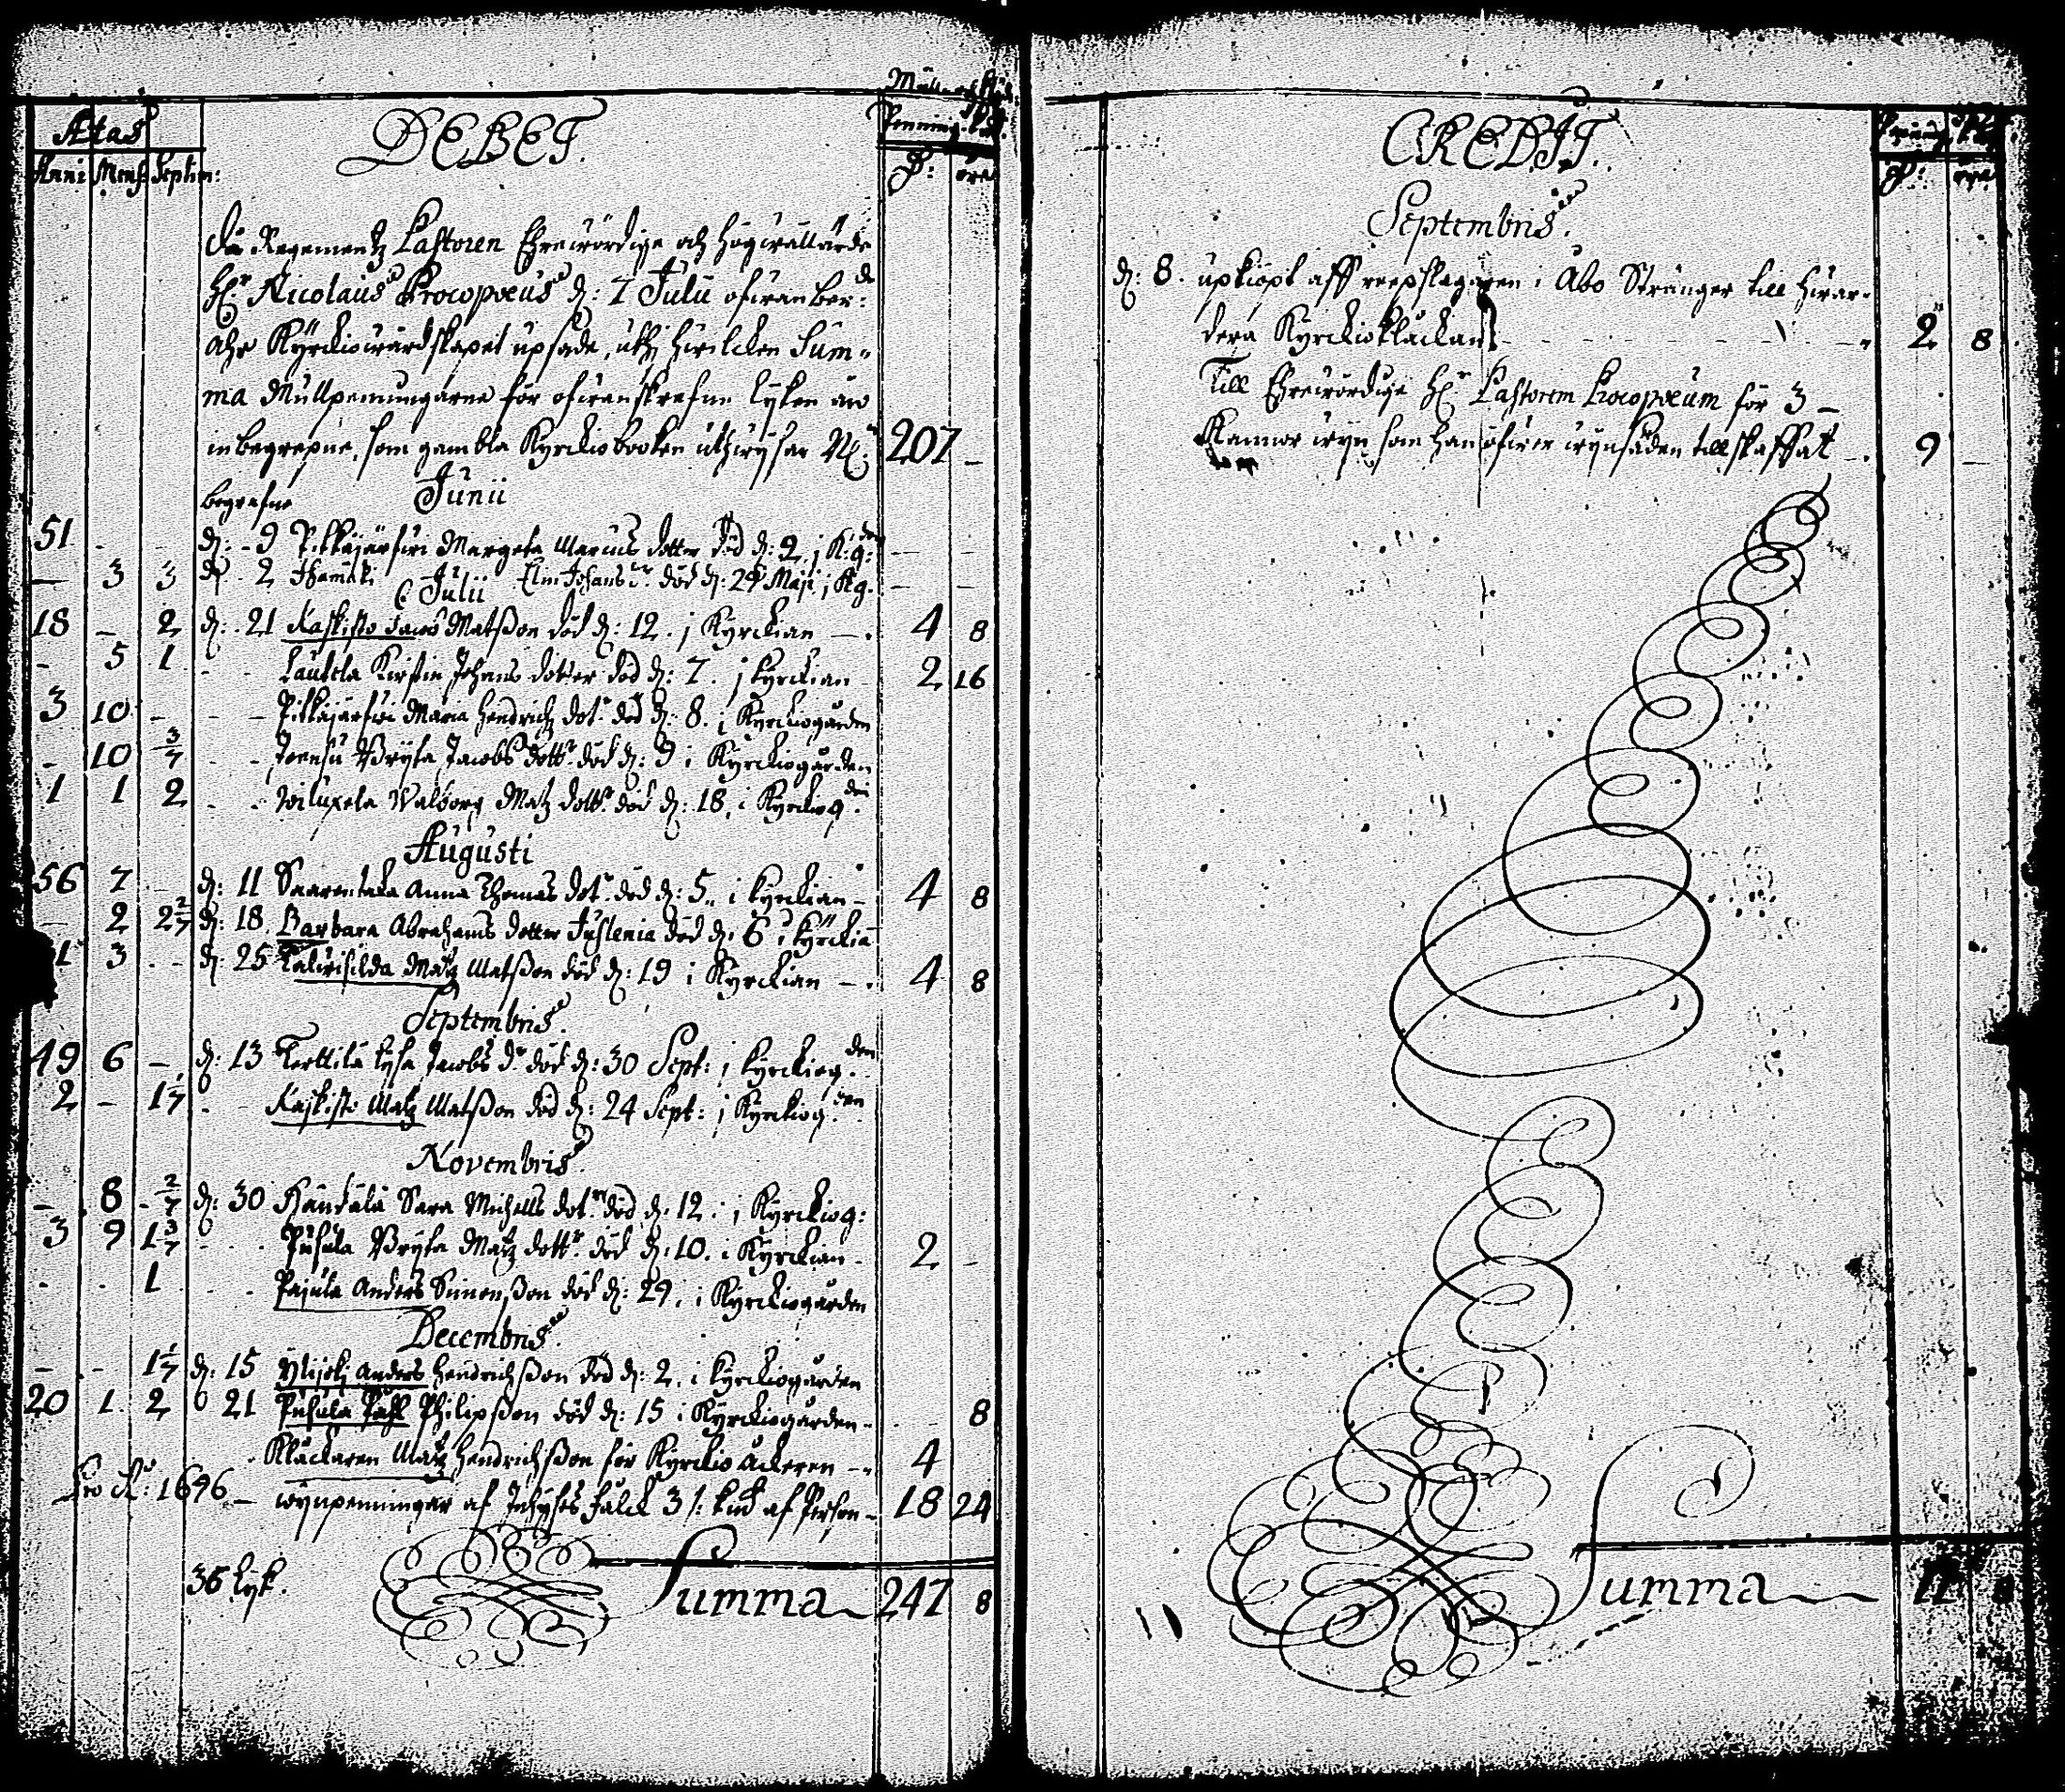 Ætas
DEBET.
Penning
Anni Mens: Septim:
D: öre
Regementz Pastoren Ehrewördige och högwällärde
H:r Nicolaus Procopæus d: 7 Julii ofwanber:de
åhr Kyrkiowärdskapet upsade, uthj hwilcken Sum-
ma Mullpenningarne för ofwanskrefne lyken äro
inbegrepne, som gambla Kyrkiobooken uthwijsar 207 -
begrafne Junii
51 - - d: 9 Pitkäjärfwi Margeta Marcus dotter död d: 2. j K:g:den - -
- 3 3 d: 2 Elin Johans dr. död d: 29 Maji j Kg. - -
Julii
18 - 2 d: 21 Kaskisto Jacob Matßon död d: 12. j Kyrckian - 4 8
- 5 1 Lautela Kirstin Johans dotter död d: 7. j Kyrckian 2 16
3 10 - Pitkäjärfwi Maria Hendrichz dot:r död d: 8. i Kyrckiogården
- 10 3/7 Joensu Brijta Jacobs dott:r död d: 9 i Kyrckiogården
1 1 2 Walborg Matz dott:r död d: 18. i Kyrckiog:den
Augusti
56 7 - d: 11 Anna Thomas dot:r död d: 5. i Kyrckian - 4 8
- 2 2 2/7 d: 18. Barbara Abrahams dotter Juslenia död d: 6 i Kyrckia
1 3 - d: 25 Matz Matßon död d: 19 i Kyrckian - 4 8
Septembris.
49 6 - d: 13 Terttilä Lysa Jacobs d:r död d: 30 Sept: j Kyrckiog:den
2 - 1 1/7 Kaskisto Matz Matßon död d: 24 Sept: j Kyrckiog:den
Novembris.
- 8 2/7 d: 30 Sara Michells dot:r död d: 12. j Kyrckiog:
3 9 1 3/7 Puhula Brijta Matz dott:r död d: 10. i Kyrckian 2 -
- - 1 Pajula Anders Simonßon död d: 29. i Kyrckiogården
Decembris.
- - 1 1/7 d: 15 Anders Hendrichßon död d: 2. i Kyrckiogården
20 1. 2 21 Puhula Påhl Philipßon död d: 15 i Kyrckiogården - 8
Klåckaren Matz Hendrichßon för Kyrckio Åckeren - 4
Pro A:o 1696 - wijnpenningar af 18 24
36 lijk.
Summa 247 8
CREDIT.
D: öre
Septembris.
d: 8. upkiöpt aff reepslagaren i Åbo Stränger till
dera Kyrckioklåckan - - - 2 8
Till Ehrewördige H:r Pastorem Procopæum för 3 -
Kannor wijn som han öfwer wijnsäden tillskaffat - 9 -
Summa 11 8